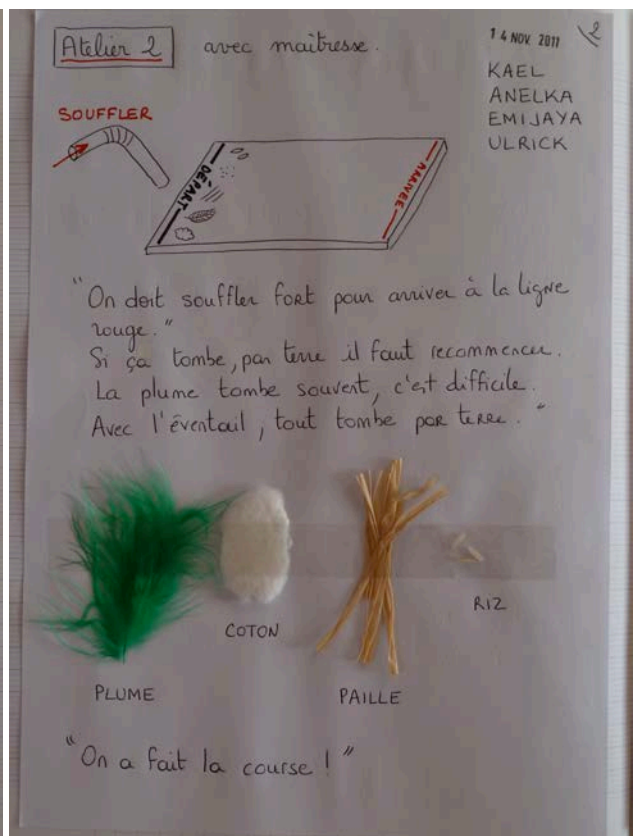 Atelier 2 avec maîtresse.
14 NOV. 2011
2
KAEL
ANELKA
EMIJAYA
ULRICK
SOUFFLER
DÉPART
ARRIVÉE
"On doit souffler fort pour arriver à la ligne
rouge."
Si ça tombe, par terre il faut recommencer.
La plume tombe souvent, c'est difficile.
Avec l'éventail, tout tombe par terre."
PLUME
COTON
PAILLE
RIZ
"On a fait la course !"